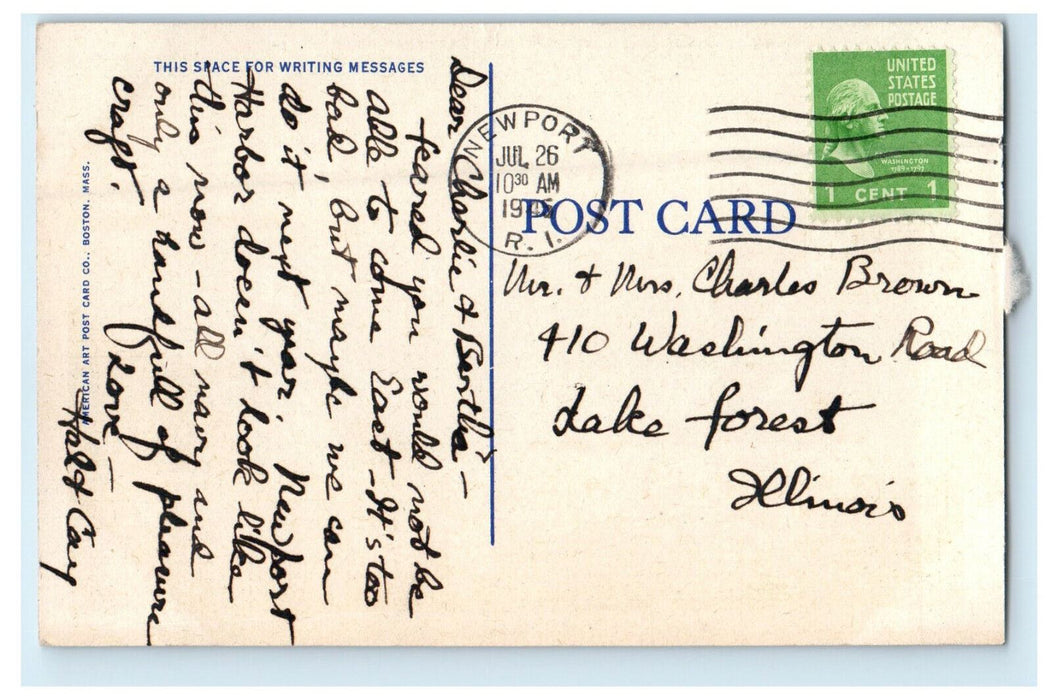 THIS SPACE FOR WRITING MESSAGES
Dear Charlie & Bertha –
feared you would not be
able to come East – It's too
bad, but maybe we can
do it next year. Newport
Harbor doesn't look like
this now – all navy and
only a handfull of pleasure
crafts.
Love –
Hal & Cary
AMERICAN ART POST CARD CO., BOSTON, MASS.
NEWPORT
JUL 26
10 30 AM
R. I.
UNITED
STATES
POSTAGE
WASHINGTON
1789-1797
1 CENT 1
POST CARD
Mr. & Mrs. Charles Brown
410 Washington Road
Lake Forest
Illinois